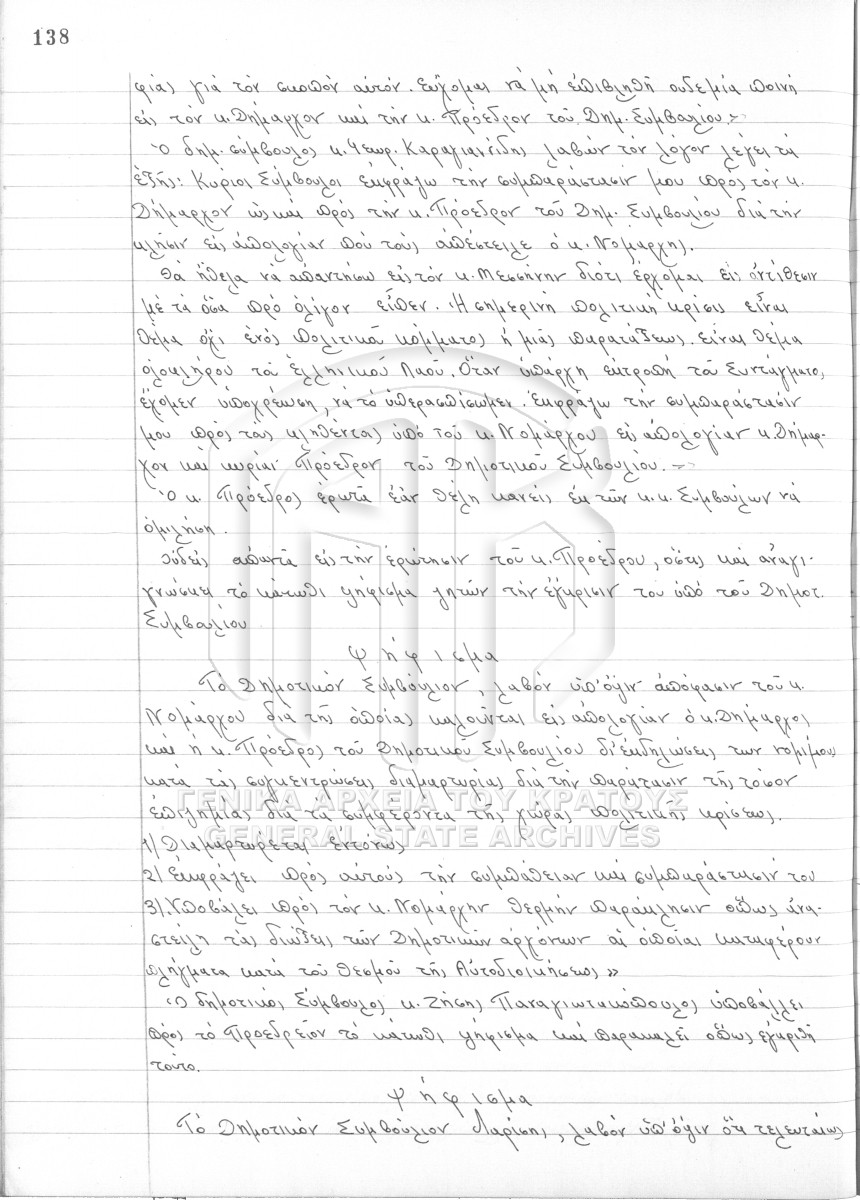 138
φίας γιά τόν σκοπόν αὐτόν. Εὔχομαι νά μή ἐπιβληθῆ οὐδεμία ποινή
εἰς τόν κ. Δήμαρχον καί τήν κ. Πρόεδρον τοῦ Δημ. Συμβουλίου.»
Ὁ δημ. σύμβουλος κ. Γεωρ. Καραγιαννίδης λαβών τόν λόγον λέγει τά
ἑξῆς: Κύριοι Σύμβουλοι ἐκφράζω τήν συμπαράστασίν μου πρός τόν κ.
Δήμαρχον ὡς καί πρός τήν κ. Πρόεδρον τοῦ Δημ. Συμβουλίου διά τήν
κλῆσιν εἰς ἀπολογίαν πού τούς ἀπέστειλε ὁ κ. Νομάρχης.
Θά ἤθελα νά ἀπαντήσω εἰς τόν κ. Μεσσήνην διότι ἔρχομαι εἰς ἀντίθεσιν
μέ τά ὅσα πρό ὀλίγον εἶπεν. Ἡ σημερινή πολιτική κρίσις εἶναι
θέμα ὄχι ἑνός πολιτικοῦ κόμματος ἤ μιᾶς παρατάξεως. εἶναι θέμα
ὁλοκλήρου τοῦ Ἑλληνικοῦ Λαοῦ. Ὅταν ὑπάρχη ἐκτροπή τοῦ Συντάγματος,
ἔχομεν ὑποχρέωση, νά τό ὑπερασπίσωμεν. Ἐκφράζω τήν συμπαράστασίν
μου πρός τούς κληθέντας ὑπό τοῦ κ. Νομάρχου εἰς ἀπολογίαν κ. Δήμαρ-
χον καί κυρίαν Πρόεδρον τοῦ Δημοτικοῦ Συμβουλίου.»
Ὁ κ. Πρόεδρος ἐρωτᾶ ἐάν θέλη κανείς ἐκ τῶν κ.κ. Συμβούλων νά
ὁμιλήση.
Οὐδείς ἀπαντᾶ εἰς τήν ἐρώτησιν τοῦ κ. Προέδρου, ὅστις καί ἀναγι-
γνώσκει τό κάτωθι ψήφισμα ζητῶν τήν ἔγκρισιν του ὑπό τοῦ Δημοτ.
Συμβουλίου
Ψήφισμα
Τό Δημοτικόν Συμβούλιον, λαβόν ὑπ' ὄψιν ἀπόφασιν τοῦ κ.
Νομάρχου διά τῆς ὁποίας καλοῦνται εἰς ἀπολογίαν ὁ κ. Δήμαρχος
καί ἡ κ. Πρόεδρος τοῦ Δημοτικοῦ Συμβουλίου δι' ἐκδηλώσεις των νομίμους
κατά τάς συγκεντρώσεις διαμαρτυρίας διά τήν παράτασιν τῆς τόσον
ἐπιζημίας διά τά συμφέροντα τῆς χώρας πολιτικῆς κρίσεως.
ΓΕΝΙΚΑ ΑΡΧΕΙΑ ΤΟΥ ΚΡΑΤΟΥΣ
GENERAL STATE ARCHIVES
1/ Διαμαρτύρεται ἐντόνως
2/ Ἐκφράζει πρός αὐτούς τήν συμπάθειαν καί συμπαράστασίν του
3/. Ὑποβάλει πρός τόν κ. Νομάρχην θερμήν παράκλησιν ὅπως ἀνα-
στείλη τάς διώξεις τῶν Δημοτικῶν ἀρχόντων αἱ ὁποῖαι καταφέρουν
πλήγματα κατά τοῦ θεσμοῦ τῆς Αὐτοδιοικήσεως»
Ὁ δημοτικός Σύμβουλος κ. Ζήσης Παναγιωτακόπουλος ὑποβάλλει
πρός τό Προεδρεῖον τό κάτωθι ψήφισμα καί παρακαλεῖ ὅπως ἐγκριθῆ
τοῦτο.
Ψήφισμα
Τό Δημοτικόν Συμβούλιον Λαρίσης, λαβόν ὑπ' ὄψιν ὅτι τελευταίως